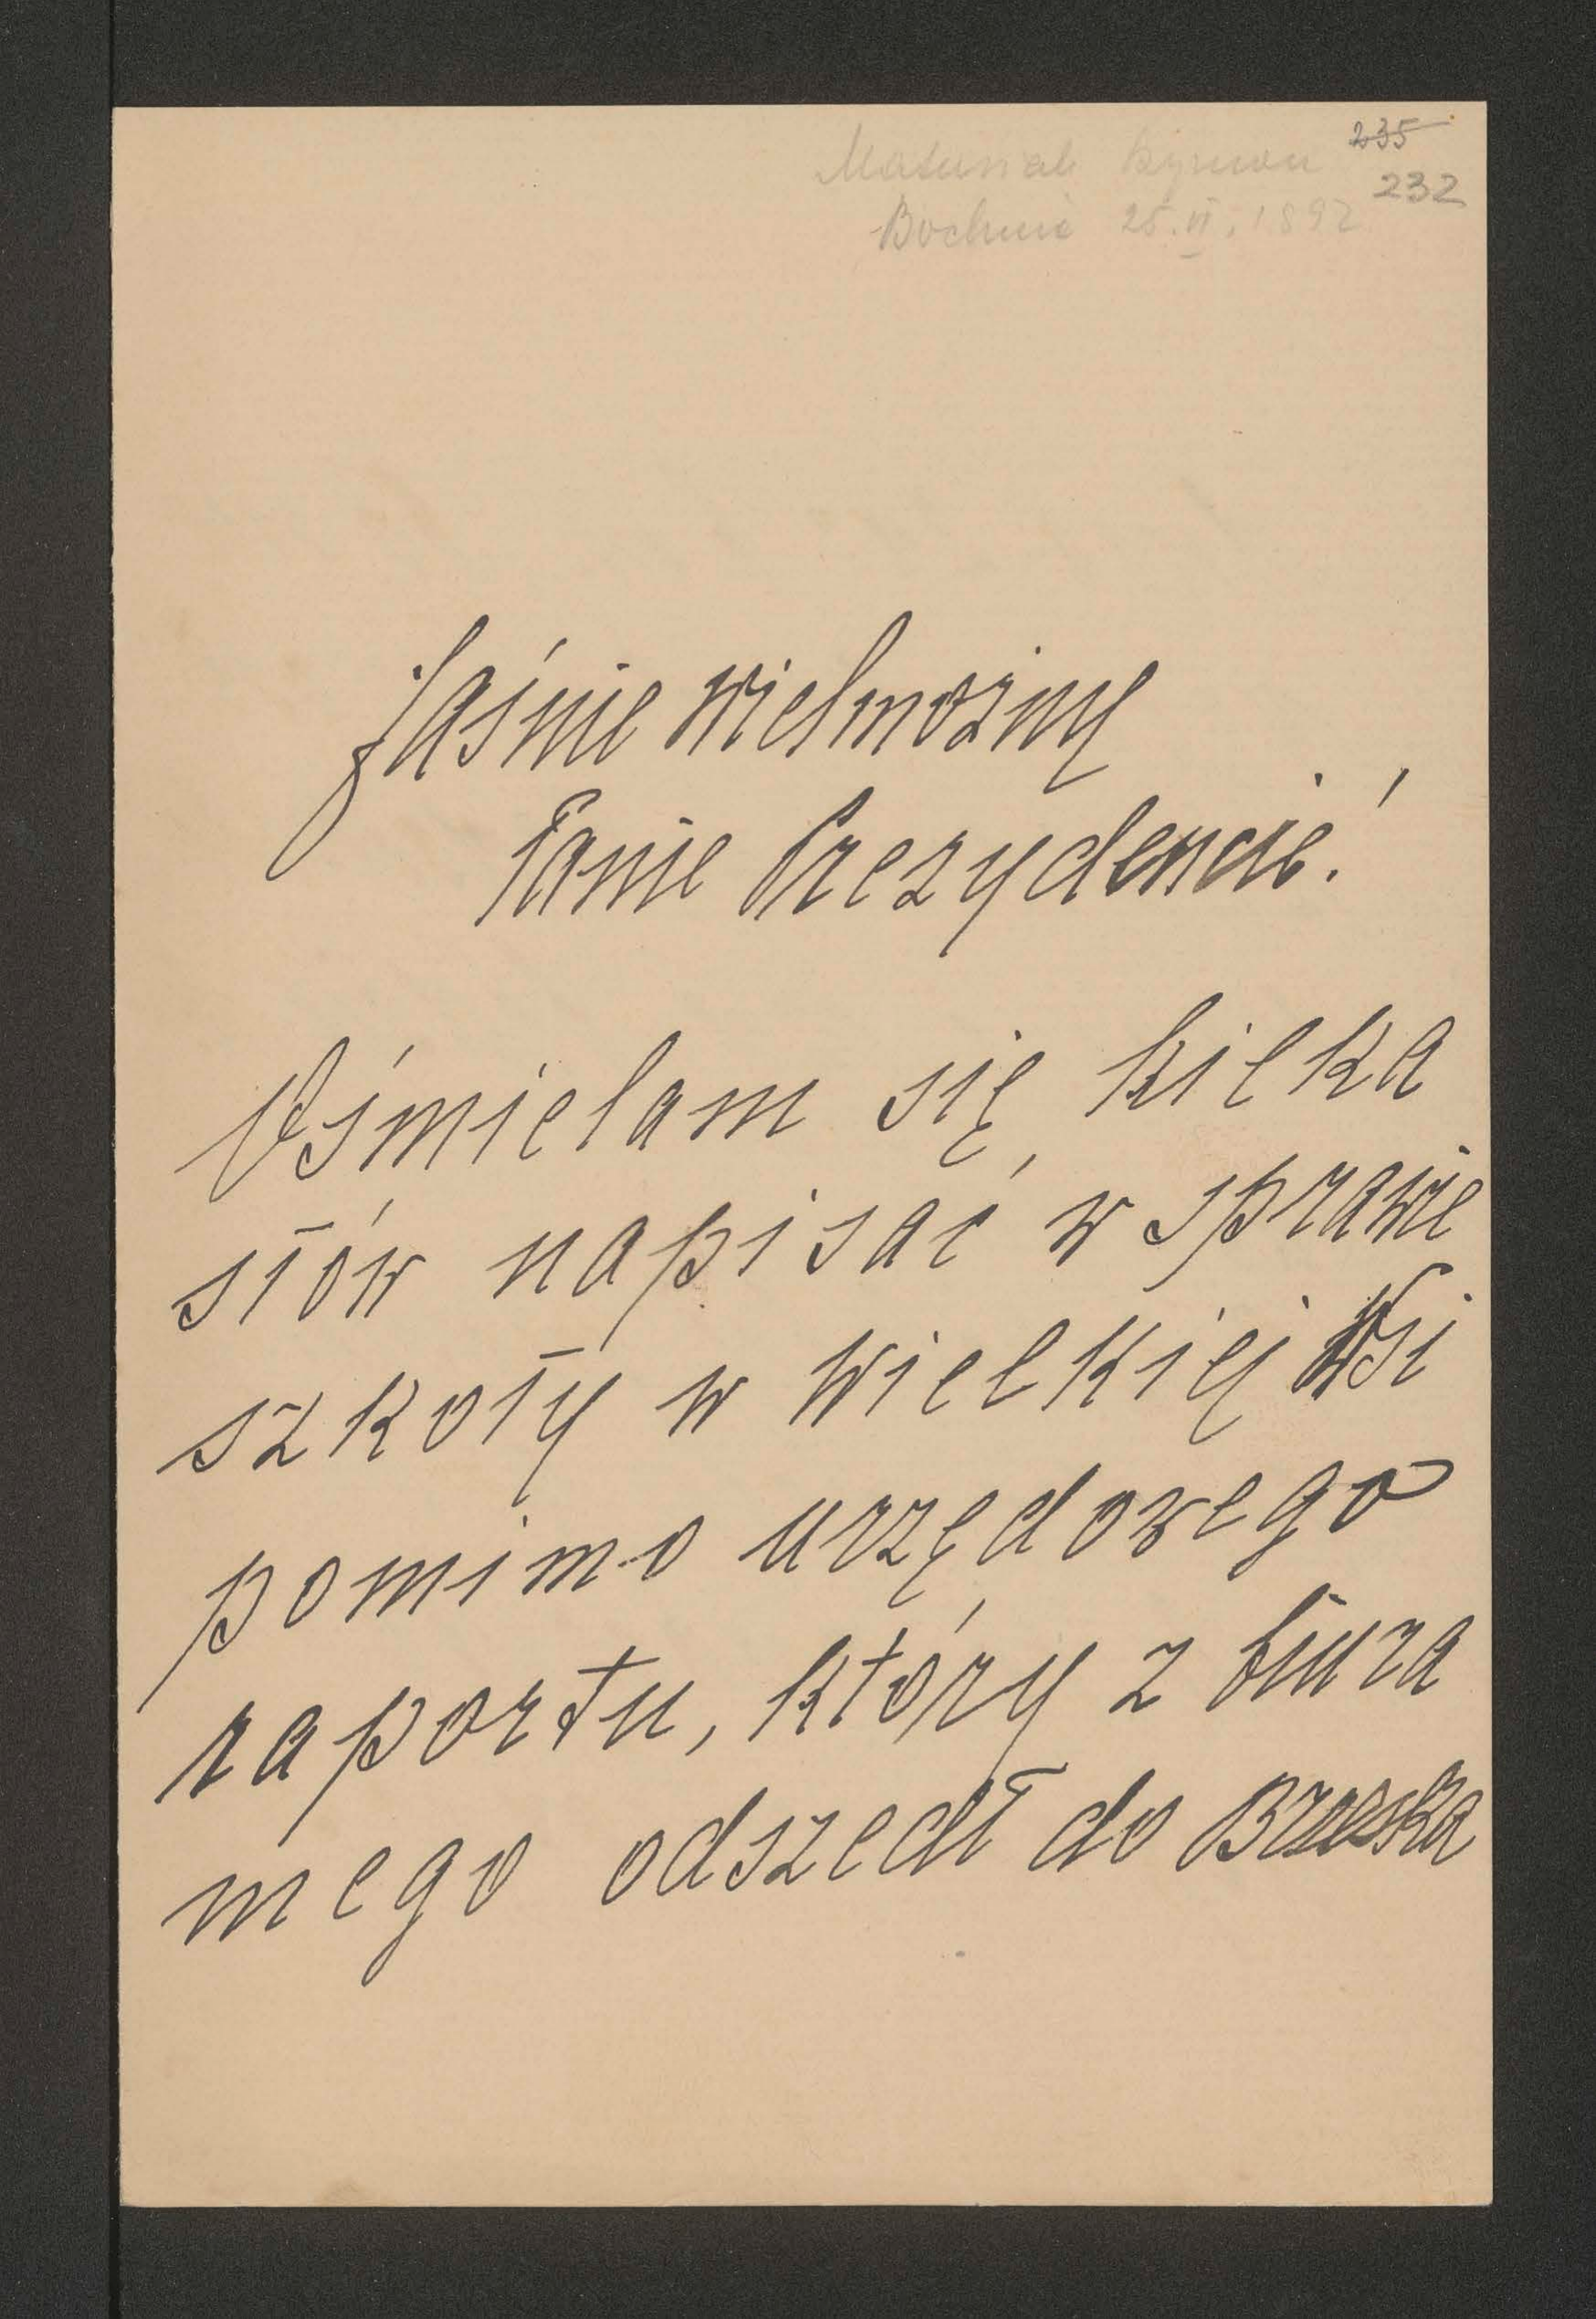 235
Matusiak Szymon 232
Bochnia 25.VI.1892
Jaśnie Wielmożny
Panie Prezydencie!
Uśmielam się kilka
słów napisać w sprawie
szkoły w Wielkiej Wsi
pomimo urzędowego
raportu, który z biura
mego odszedł do Brzeska